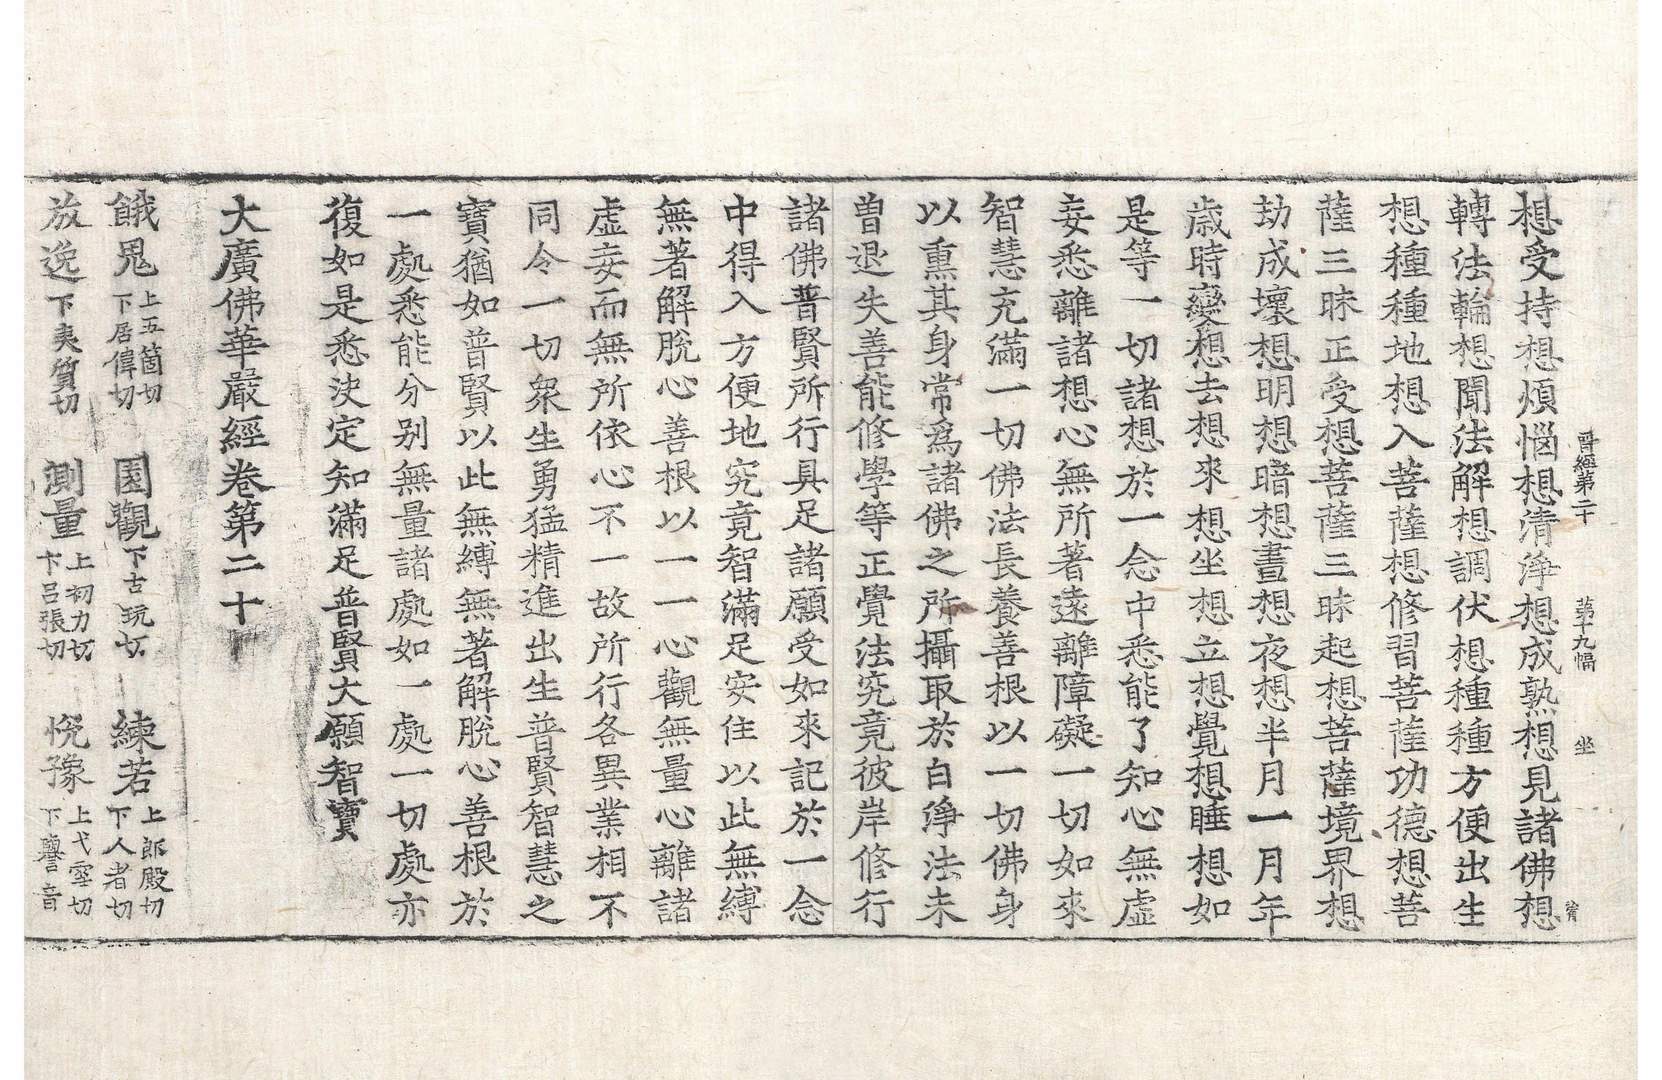 晋經第二十 第十九幅 坐
想受持想煩惱想清淨想成熟想見諸佛想
轉法輪想聞法解想調伏想種種方便出生
想種種地想入菩薩想修習菩薩功德想菩
薩三昧正受想菩薩三昧起想菩薩境界想
劫成壞想明想暗想晝想夜想半月一月年
歲時變想去想來想坐想立想覺想睡想如
是等一切諸想於一念中悉能了知心無虛
妄悉離諸想心無所著遠離障礙一切如來
智慧充滿一切佛法長養善根以一切佛身
以熏其身常爲諸佛之所攝取於白淨法未
曽退失善能修學等正覺法究竟彼岸修行
諸佛普賢所行具足諸願受如來記於一念
中得入方便地究竟智滿足安住以此無縛
無著解脫心善根以一一心觀無量心離諸
虛妄而無所依心不一故所行各異業相不
同令一切衆生勇猛精進出生普賢智慧之
寶猶如普賢以此無縛無著解脫心善根於
一處悉能分别無量諸處如一處一切處亦
復如是悉決定知滿足普賢大願智寶
大廣佛華嚴經卷第二十
餓鬼上五箇切下居偉切 園觀下古玩切 練若上郎殿切下人者切
放逸下夷質切 測量上初力切下呂張切 悅豫上弋雪切下譽音